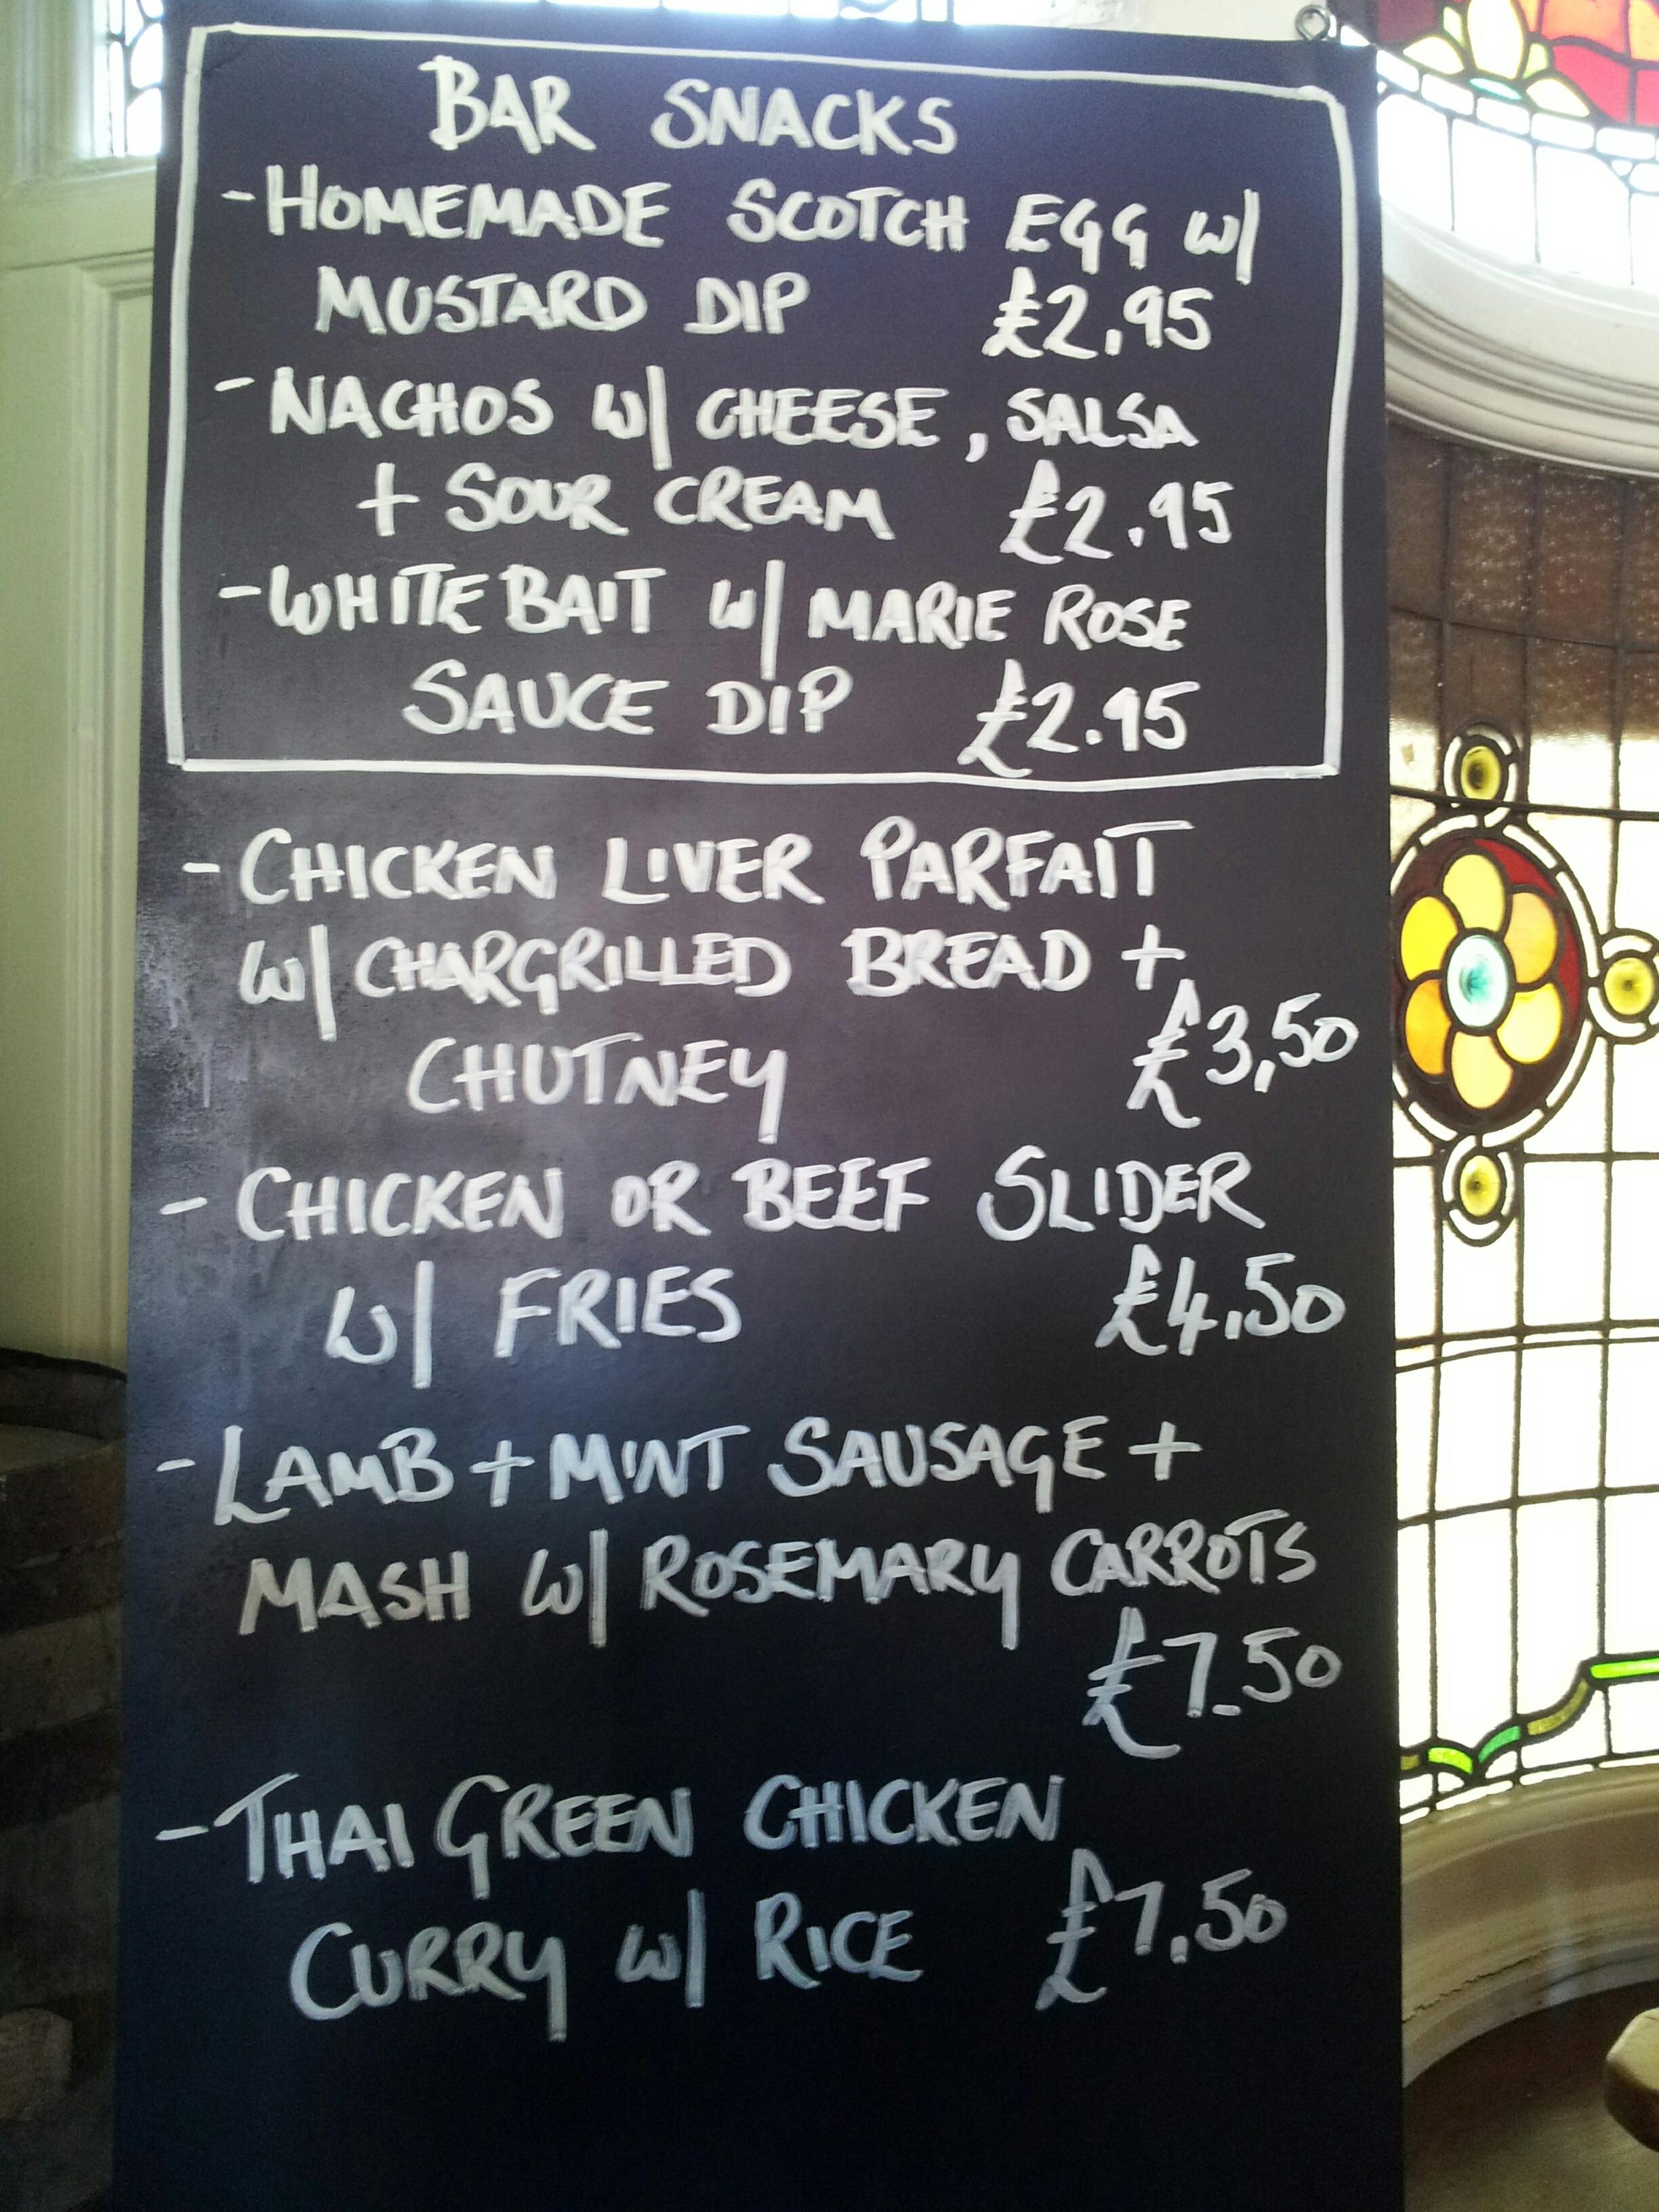 BAR SNACKS
- HOMEMADE SCOTCH EGG W/
MUSTARD DIP £2.95
- NACHOS W/ CHEESE, SALSA
+ SOUR CREAM £2.95
- WHITEBAIT W/ MARIE ROSE
SAUCE DIP £2.95
- CHICKEN LIVER PARFAIT
W/ CHARGRILLED BREAD +
CHUTNEY £3.50
- CHICKEN OR BEEF SLIDER
W/ FRIES £4.50
- LAMB + MINT SAUSAGE +
MASH W/ ROSEMARY CARROTS
£7.50
- THAI GREEN CHICKEN
CURRY W/ RICE £7.50